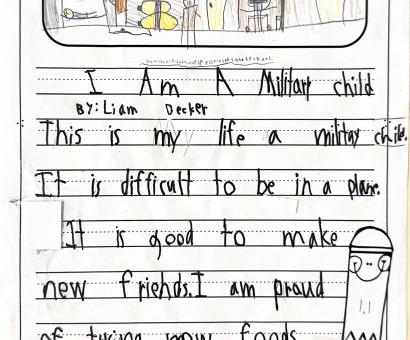 I Am A Military child
BY: Liam Decker
This is my life a military chile.
It is difficult to be in a plane.
It is good to make
new friends. I am proud
of trying new foods